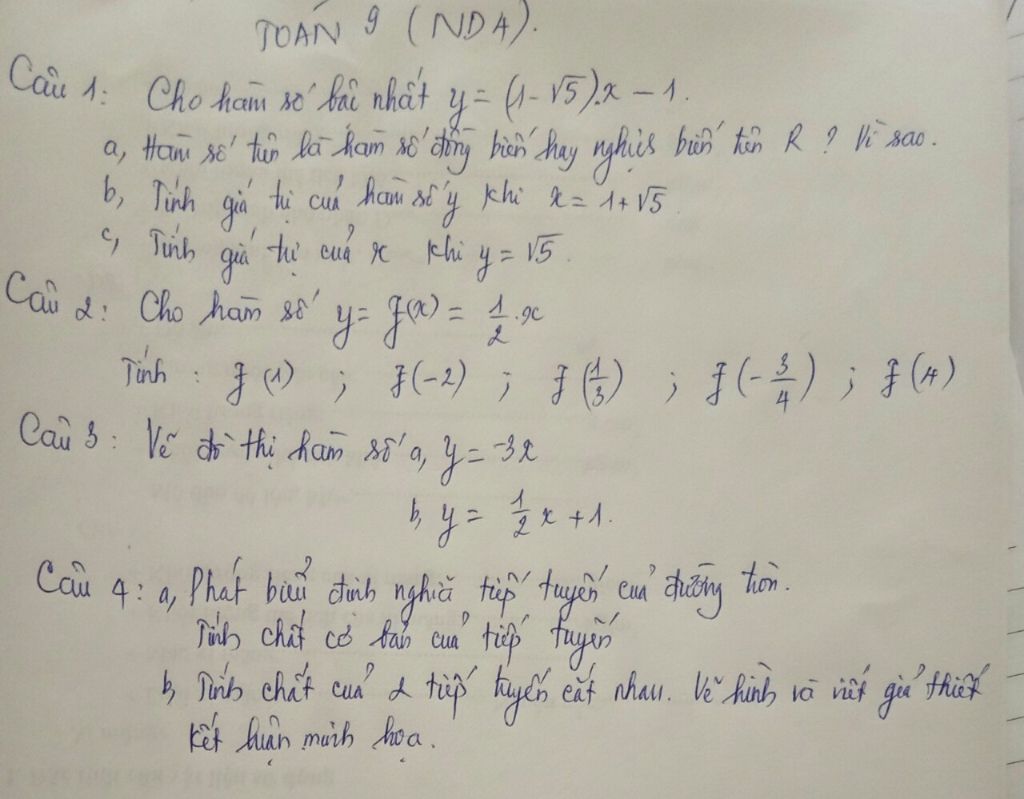 TOÁN 9 (NDA).
Câu 1: Cho hàm số bậc nhất y = (1-√5).x - 1.
a, Hàm số trên là hàm số đồng biến hay nghịch biến trên R? Vì sao.
b, Tính giá trị của hàm số y khi x = 1+√5
c, Tính giá trị của x khi y = √5.
Câu 2: Cho hàm số y = f(x) = 1/2 .x
Tính : f(1) ; f(-2) ; f(1/3) ; f(-3/4) ; f(4)
Câu 3: Vẽ đồ thị hàm số a, y = -3x
b, y = 1/2 x + 1.
Câu 4: a, Phát biểu định nghĩa tiếp tuyến của đường tròn.
Tính chất cơ bản của tiếp tuyến
b, Tính chất của 2 tiếp tuyến cắt nhau. Vẽ hình và viết giả thiết
kết luận minh họa.